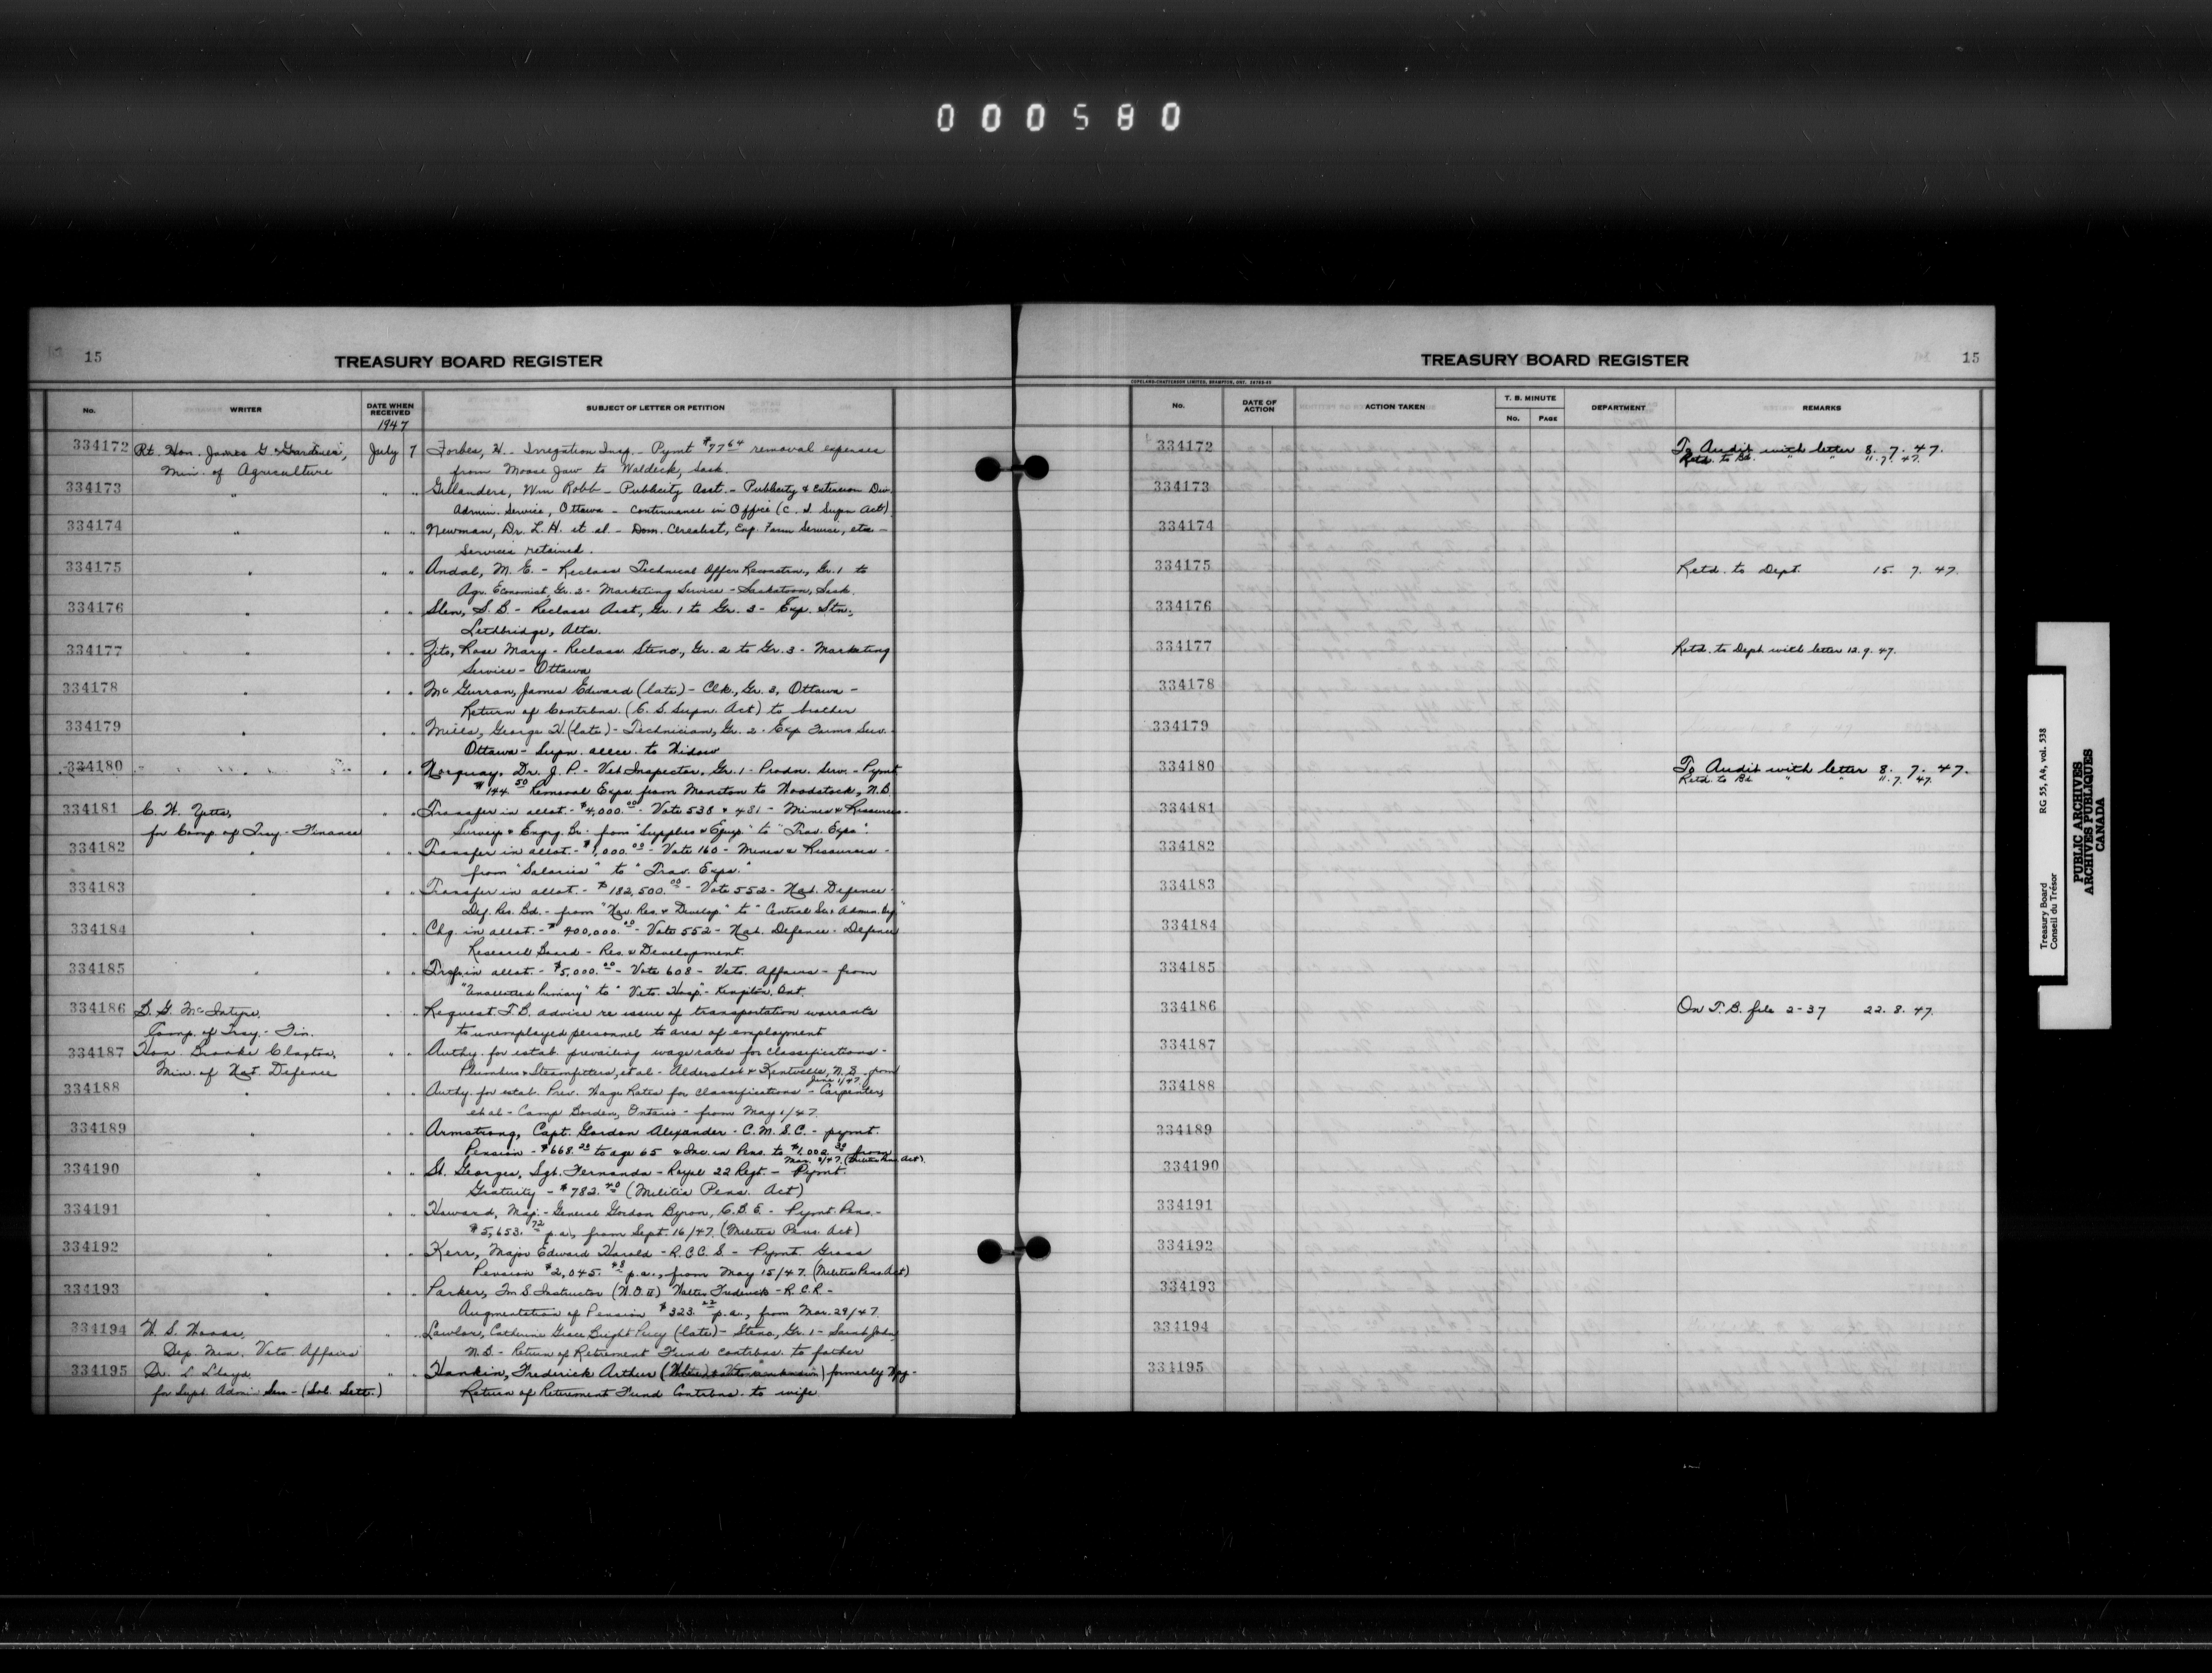 000580
15
TREASURY BOARD REGISTER
No. WRITER DATE WHEN RECEIVED SUBJECT OF LETTER OR PETITION
1947
334172 Rt. Hon. James G. Gardiner, July 7 Forbes, H. - Irrigation Insp. - Pymt $77.64 removal expenses
Min. of Agriculture from Moose Jaw to Waldeck, Sask.
334173 " " " Gillanders, Wm Robb - Publicity Asst. - Publicity & Extension Div.
Admin. Service, Ottawa - Continuance in Office (C. S. Supn Act)
334174 " " " Newman, Dr. L. H. et al - Dom. Cerealist, Exp. Farm Service, etc -
Services retained.
334175 " " " Andal, M. E. - Reclass Technical Offcr Reconstn, Gr. 1 to
Agr. Economist Gr. 2 - Marketing Service - Saskatoon, Sask.
334176 " " " Slen, S. B. - Reclass Asst, Gr. 1 to Gr. 3 - Exp. Stn.,
Lethbridge, Alta.
334177 " " " Zito, Rose Mary - Reclass Steno, Gr. 2 to Gr. 3 - Marketing
Service - Ottawa
334178 " " " McGurran, James Edward (late) - Clk., Gr. 3, Ottawa -
Return of Contribns. (C. S. Supn. Act) to brother
334179 " " " Mills, George H. (late) - Technician, Gr. 2 - Exp Farms Serv.
Ottawa - Supn. allce. to Widow
334180 " " " Norquay, Dr. J. P. - Vet Inspector, Gr. 1 - Prodn. Serv. - Pymt
$144.50 Removal Exps. from Moncton to Woodstock, N.B.
334181 C. H. Yetts, " " Transfer in allot. - $4,000.00 - Vote 538 & 431 - Mines & Resources -
for Comp. of Tresy - Finance Surveys & Engrg. Br. from "Supplies & Equip" to "Trav. Exps".
334182 " " " Transfer in allot. - $1,000.00 - Vote 160 - Mines & Resources -
from "Salaries" to "Trav. Exps."
334183 " " " Transfer in allot. - $182,500.00 - Vote 552 - Nat. Defence -
Def. Res. Bd. - from "Nav. Res. & Develop." to "Central Sci & Admin. Org."
334184 " " " Chg. in allot. - $400,000.00 - Vote 552 - Nat. Defence - Defence
Research Board - Res. & Development.
334185 " " " Trsfr in allot. - $5,000.00 - Vote 608 - Vets. Affairs - from
"Unallotted Primary" to "Vets. Hosp." - Kingston, Ont.
334186 B. G. McIntyre, " " Request T.B. advice re issue of transportation warrants
Comp. of Tresy. - Fin. to unemployed personnel to area of employment
334187 Hon. Brooke Claxton, " " Authy. for estab. prevailing wage rates for classifications -
Min. of Nat. Defence Plumbers & Steamfitters, et al - Aldershot & Kentville, N.S. from
June 1/47.
334188 " " " Authy. for estab. Prev. Wage Rates for classifications - Carpenter,
et al - Camp Borden, Ontario - from May 1/47.
334189 " " " Armstrong, Capt. Gordon Alexander - C.M.S.C. - pymt.
Pension - $668. to age 65 & Inc. in Pens. to $1,002. from
Mar. /47. (Militia Pens. Act)
334190 " " " St. Georges, Sgt. Fernando - Royal 22 Regt. - Pymt.
Gratuity - $782.40 (Militia Pens. Act)
334191 " " " Howard, Maj.-General Gordon Byron, C.B.E. - Pymt. Pens. -
$5,653.72 p.a., from Sept. 16/47. (Militia Pens. Act)
334192 " " " Kerr, Major Edward Harold - R.C.C.S. - Pymt. Gross
Pension $2,045.48 p.a., from May 15/47. (Militia Pens Act)
334193 " " " Parker, Sm S Instructor (W.O. II) Walter Frederick - R.C.R. -
Augmentation of Pension $323. p.a., from Mar. 29/47
334194 W. S. Woods, " " Lawlor, Catherine Grace Bright Percy (late) - Steno, Gr. 1 - Saint John
Dep. Min. Vets Affairs N.B. - Return of Retirement Fund contribns. to father
334195 Dr. L Lloyd, " " Hankin, Frederick Arthur formerly Wpg -
for Supt. Admin Serv - (Sol. Settt.) Return of Retirement Fund Contribns. to wife
TREASURY BOARD REGISTER
15
COPELAND-CHATTERSON LIMITED, BRAMPTON, ONT.
No. DATE OF ACTION ACTION TAKEN T. B. MINUTE No. PAGE DEPARTMENT REMARKS
334172 To Audit with letter 8. 7. 47.
Retd. to Bd. " " 11. 7. 47.
334173
334174
334175 Retd. to Dept. 15. 7. 47.
334176
334177 Retd. to Dept with letter 12. 9. 47.
334178
334179
334180 To Audit with letter 8. 7. 47.
Retd. to Bd. " 11. 7. 47
334181
334182
334183
334184
334185
334186 On T.B. file 2-37 22. 8. 47.
334187
334188
334189
334190
334191
334192
334193
334194
334195
Treasury Board RG 55, A4, vol. 538
Conseil du Trésor
PUBLIC ARCHIVES
ARCHIVES PUBLIQUES
CANADA